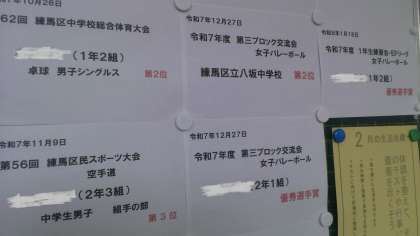 年10月26日
62回 練馬区中学校総合体育大会
(1年2組)
卓球 男子シングルス 第2位
令和7年12月27日
令和7年度 第三ブロック交流会
女子バレーボール
練馬区立八坂中学校 第2位
令和8年1月18日
令和7年度
女子バレーボール
(1年2組)
優秀選手賞
令和7年11月9日
第56回 練馬区民スポーツ大会
空手道
(2年3組)
中学生男子 組手の部
第3位
令和7年12月27日
令和7年度 第三ブロック交流会
女子バレーボール
(2年1組)
優秀選手賞
2月の生活目標